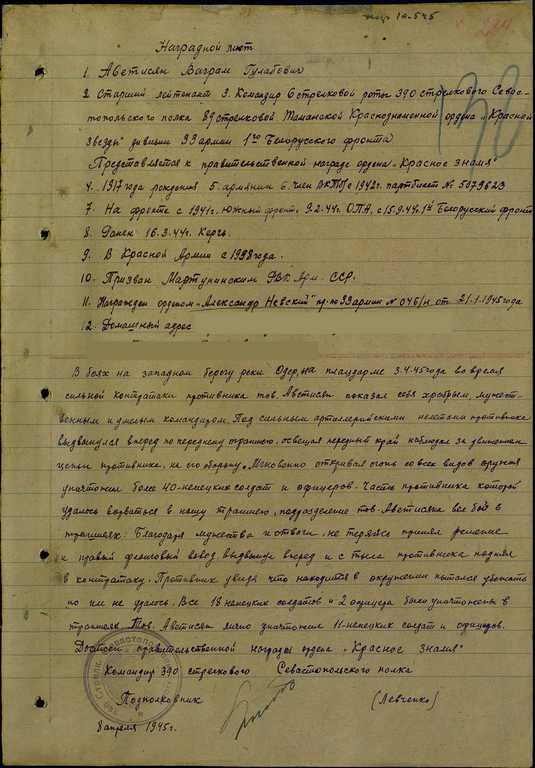 Наградной лист
1. Аветисян Ваграм Гулабович
2. Старший лейтенант 3. Командир 6 стрелковой роты 390 стрелкового Севас-
топольского полка 89 стрелковой Таманской Краснознаменной ордена „Красной
Звезды" дивизии 33 армии 1го Белорусского фронта
Представляется к правительственной награде ордена „Красное знамя"
4. 1917 года рождения 5. армянин 6. член ВКП/б с 1942г. партбилет № 5079623
7. На фронте с 1941г. Южный фронт, 9.2.44г. ОПА, с 15.9.44г. 1й Белорусский фронт
8. Ранен 16.3.44г. Керчь.
9. В Красной Армии с 1938 года.
10. Призван Мартунинским РВК Арм. ССР.
11. Награжден орденом „Александр Невский" пр. по 33 армии № 046/н от 21.1.1945 года
12. Домашный адрес
В боях на западном берегу реки Одер, на плацдарме 3.4.45 года во время
сильной контратаки противника тов. Аветисян показал себя храбрым, мужест-
венным и умелым командиром. Под сильным артиллерийскими налетами противника
выдвинулся вперед по переднему охранению, освещая передный край наблюдал за движением
цепи противника, на его оборону. Мгновенно открывая огонь со всех видов оружия
уничтожил более 40 немецких солдат и офицеров. Часть противника которой
удалось ворваться в нашу траншею, подразделение тов. Аветисяна вел бой в
траншеях. Благодаря мужества и отваги, не теряясь принял решение
и правый фланговый взвод выдвинул вперед и с тыла противника поднял
в контратаку. Противник увидя что находится в окружении пытался убежать
но им не удалось. Все 18 немецких солдатов и 2 офицера были уничтожены в
траншеях. Тов. Аветисян лично уничтожил 11 немецких солдат и офицеров.
Достоен правительственной награды ордена „Красное знамя"
Командир 390 стрелкового Севастопольского полка
Подполковник (Левченко)
8 апреля 1945г.